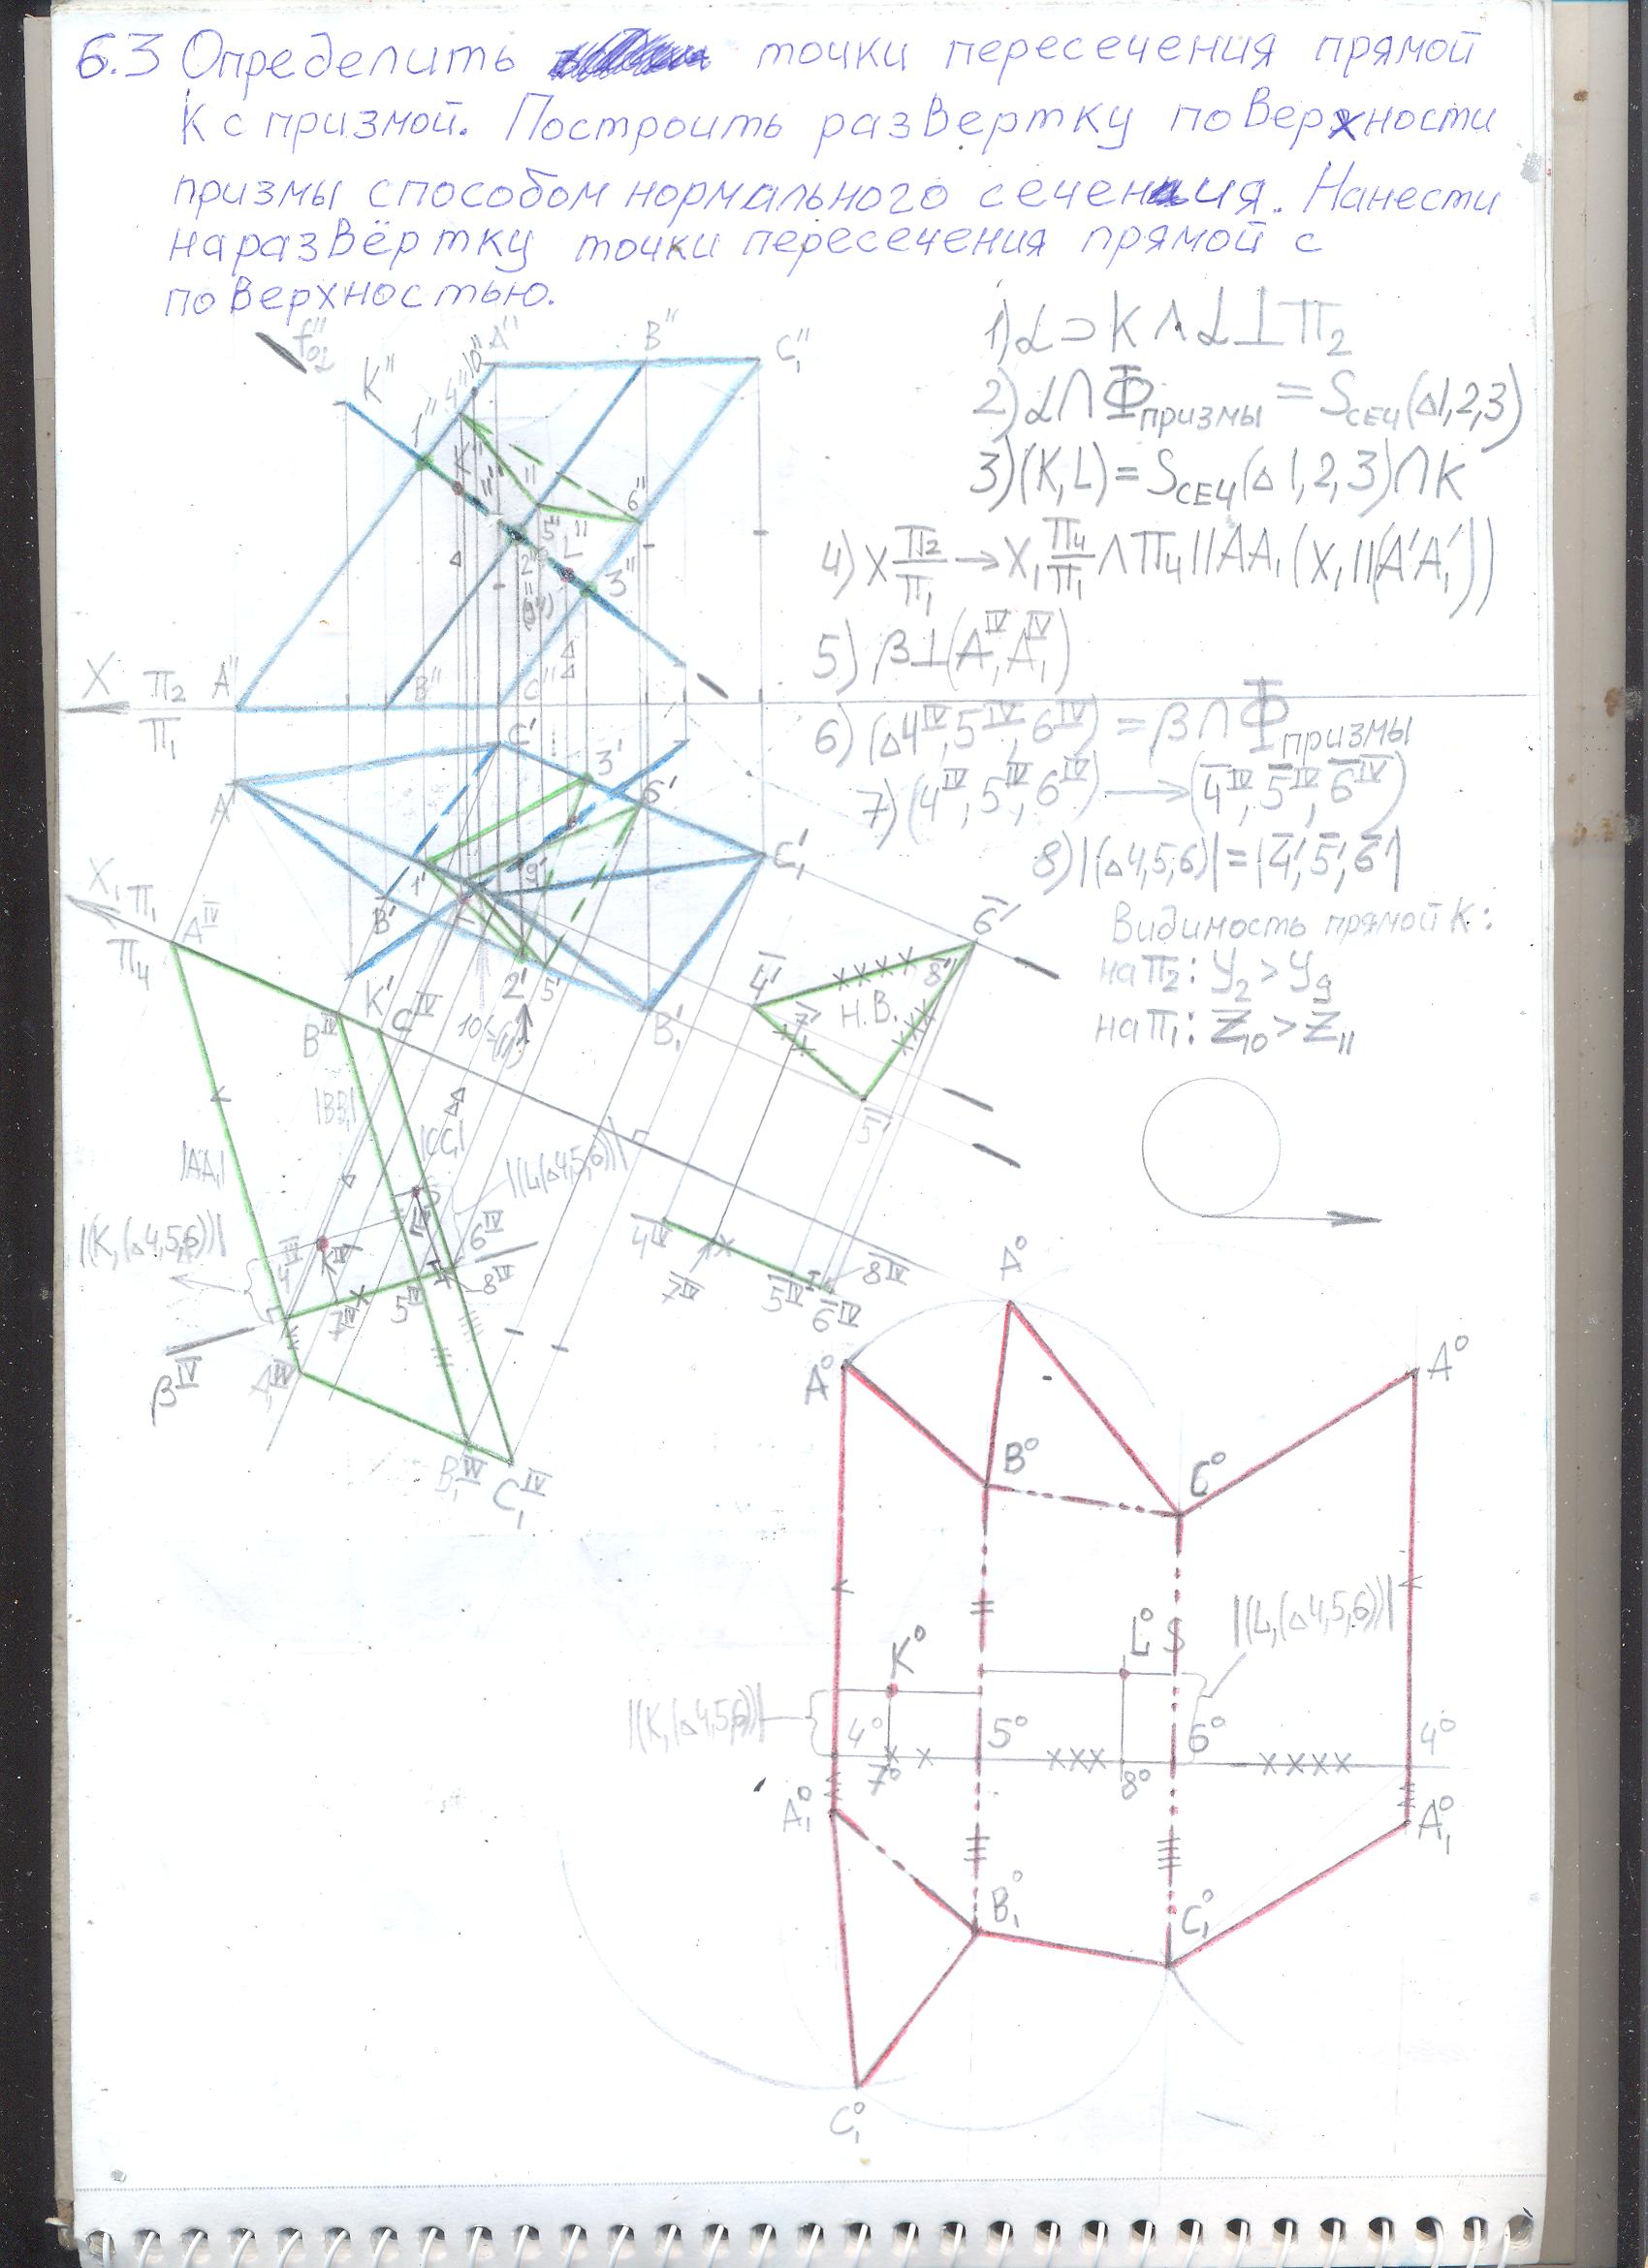 6.3 Определить точки пересечения прямой
K с призмой. Построить развертку поверхности
призмы способом нормального сечения. Нанести
на развёртку точки пересечения прямой с
поверхностью.
1) α ⊃ K ∧ α ⊥ π₂
2) α ∩ Φ призмы = S сеч (Δ1,2,3)
3) (K,L) = S сеч (Δ1,2,3) ∩ K
4) X π₂/π₁ → X₁ π₄/π₁ ∧ π₄ || AA₁ (X₁ || (A'A₁'))
5) β ⊥ (A^IV, A₁^IV)
6) (Δ4^IV, 5^IV, 6^IV) = β ∩ Φ призмы
7) (4^IV, 5^IV, 6^IV) → (4̅^IV, 5̅^IV, 6̅^IV)
8) |(Δ4,5,6)| = |4̅', 5̅', 6̅'|
Видимость прямой K:
на π₂: y₂ > y₉
на π₁: z₁₀ > z₁₁
f''₀α
K'' 1'' 4'' 10'' A'' B'' C₁''
K'' 5'' 6''
2'' L'' 3''
(9'')
X π₂/π₁ A'' B'' C''
C' 3' 6'
A' 1' 9' C₁'
B' K' 2' 5' B₁'
X₁ π₁/π₄ A^IV
B^IV C^IV 10'≡(11')
4̅' 7' 8' 6̅'
Н.В.
5̅'
|AA₁| |BB₁| |CC₁|
|(L,(Δ4,5,6))|
|(K,(Δ4,5,6))|
4^IV K^IV L^IV S 6^IV
7^IV 5^IV 8^IV
β^IV A₁^IV
B₁^IV C₁^IV
4̅^IV 7^IV 5̅^IV 6̅^IV 8^IV
A⁰
A⁰ A⁰
B⁰ C⁰
K⁰ L⁰ S |(L,(Δ4,5,6))|
|(K,(Δ4,5,6))| 4⁰ 5⁰ 6⁰ 4⁰
7⁰ 8⁰
A₁⁰ A₁⁰
B₁⁰ C₁⁰
C₁⁰